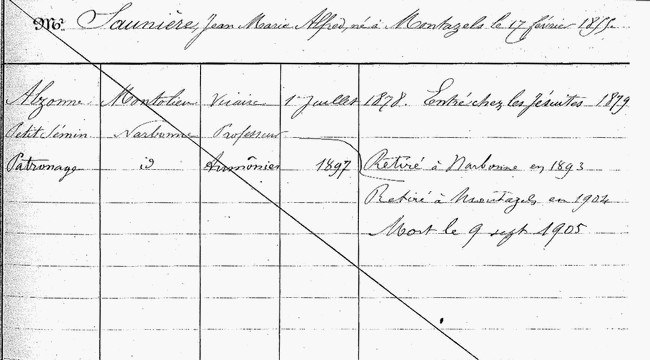 Mr. Saunière, Jean Marie Alfred, né à Montazels le 17 février 1855.
Alzonne Montolieu Vicaire 1er Juillet 1878. Entré chez les Jésuites 1879
Petit Sémin Narbonne Professeur
Patronage id Aumônier 1897 Retiré à Narbonne en 1893
Retiré à Montazels en 1904
Mort le 9 sept 1905